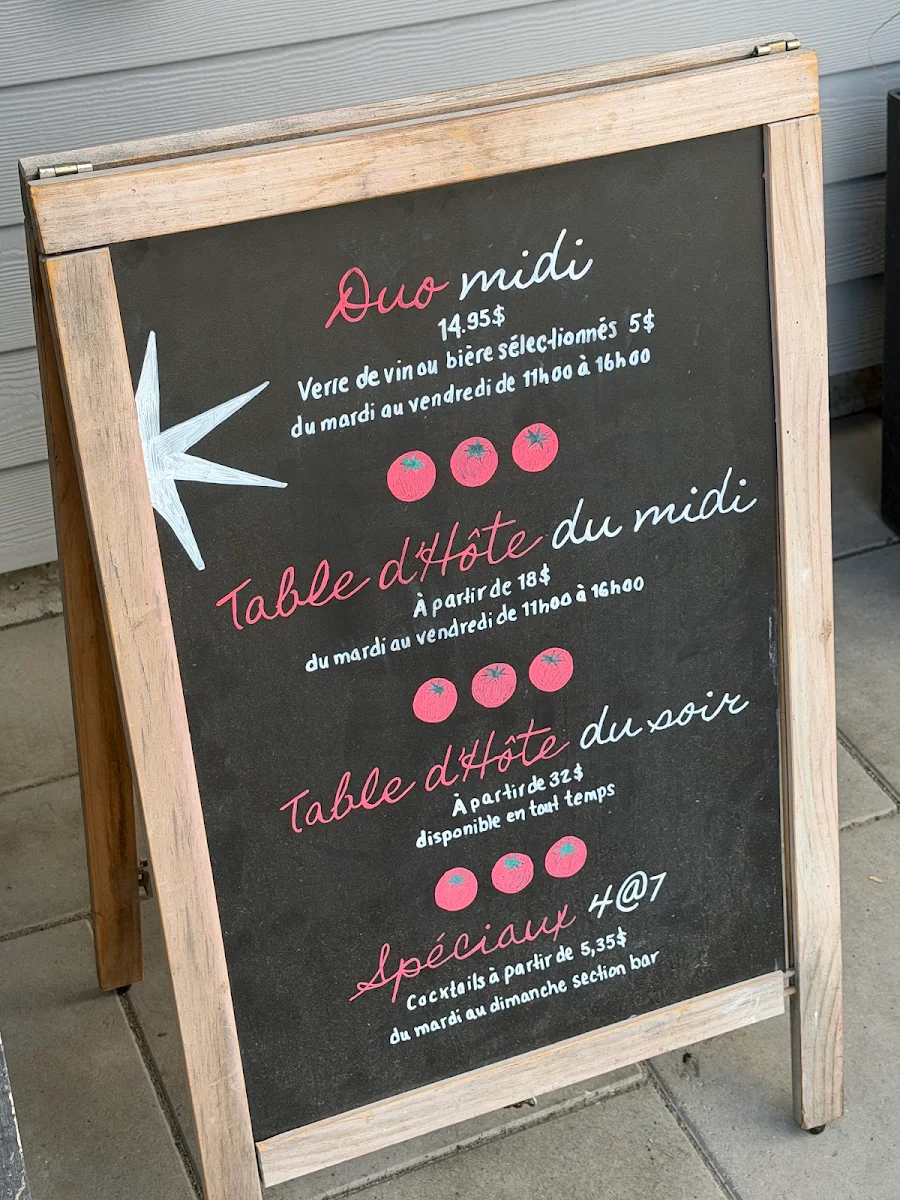 Duo midi
14.95$
Verre de vin ou bière sélectionnés 5$
du mardi au vendredi de 11h00 à 16h00
Table d'Hôte du midi
À partir de 18$
du mardi au vendredi de 11h00 à 16h00
Table d'Hôte du soir
À partir de 32$
disponible en tout temps
Spéciaux 4@7
Cocktails à partir de 5,35$
du mardi au dimanche section bar